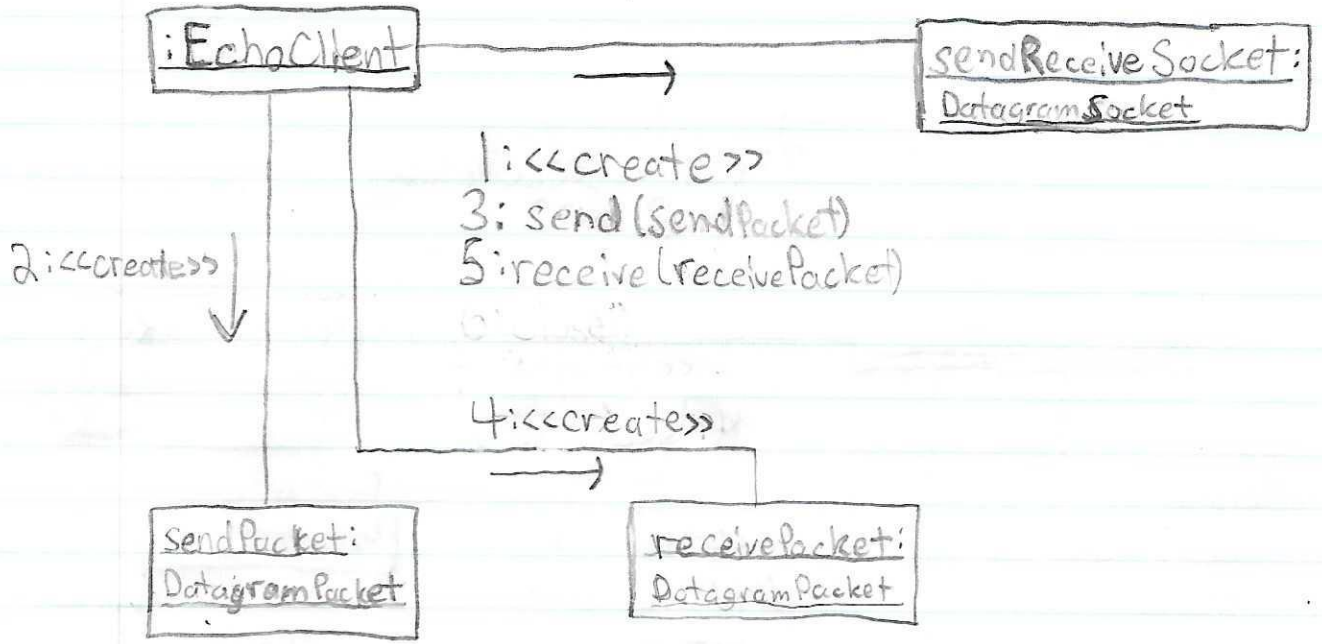 :EchoClient
sendReceiveSocket:
DatagramSocket
1:<<create>>
3: send(sendPacket)
5:receive(receivePacket)
2:<<create>>
4:<<create>>
sendPacket:
DatagramPacket
receivePacket:
DatagramPacket